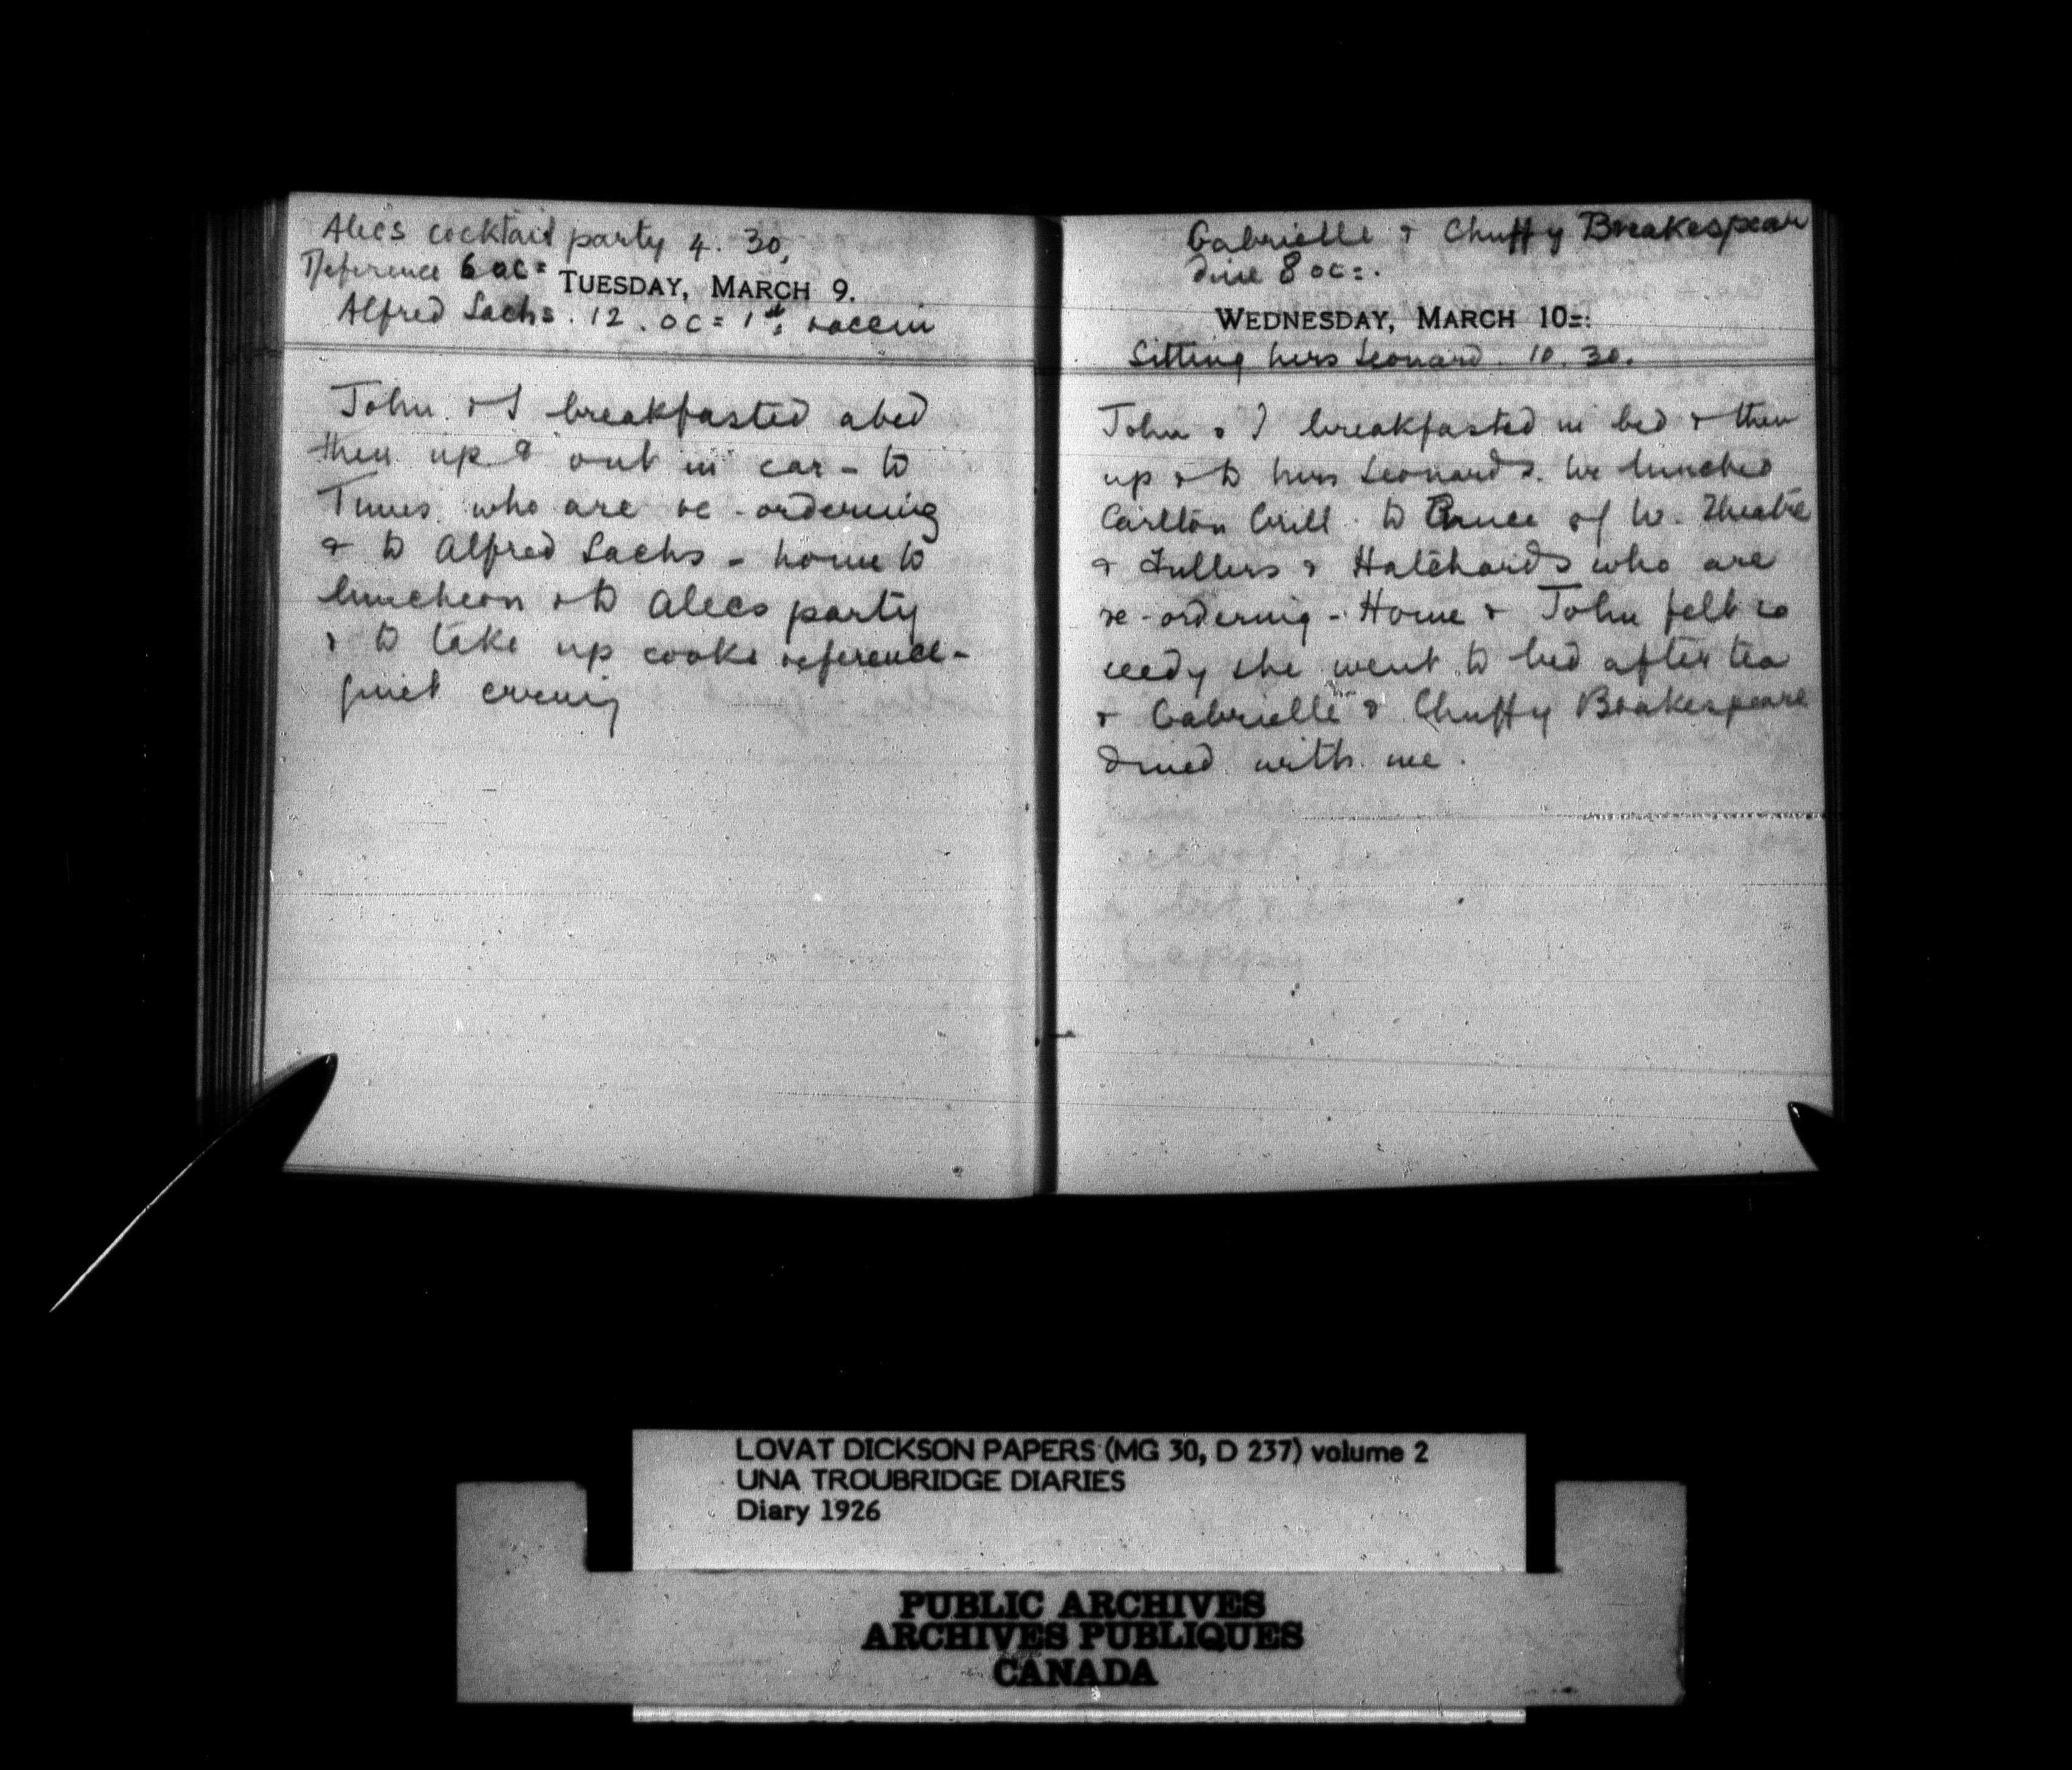 Alecs cocktail party 4. 30,
Reference 6 oc=
TUESDAY, MARCH 9.
Alfred Sachs. 12. oc= 1st, vaccin
John & I breakfasted abed
then up & out in car - to
Times who are re-ordering
& to Alfred Sachs - home to
luncheon & to Alecs party
& to take up cooks reference -
quiet evening
Gabrielle & Chuffy Breakespear
dine 8 oc=.
WEDNESDAY, MARCH 10=:
Sitting Mrs Leonard. 10. 30.
John & I breakfasted in bed & then
up & to Mrs Leonards. We lunched
Carlton Grill. to Prince of W. Theatre
& Fullers & Hatchards who are
re-ordering - Home & John felt so
seedy she went to bed after tea
& Gabrielle & Chuffy Brakespeare
dined with me.
LOVAT DICKSON PAPERS (MG 30, D 237) volume 2
UNA TROUBRIDGE DIARIES
Diary 1926
PUBLIC ARCHIVES
ARCHIVES PUBLIQUES
CANADA